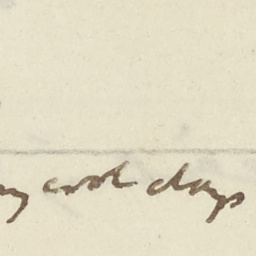 cool days